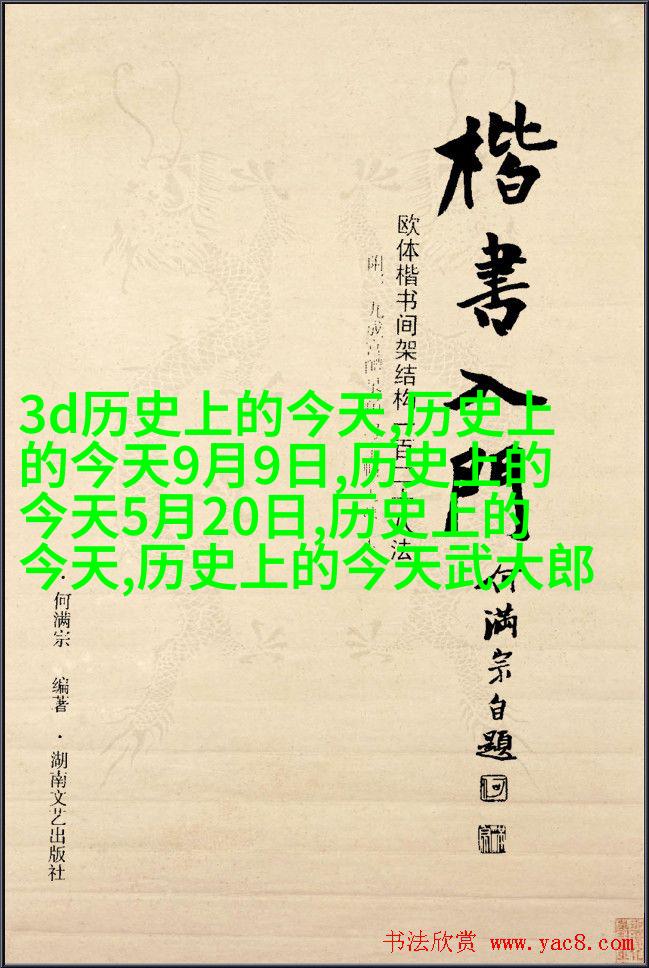 楷書入門
何满宗自題
欧体楷书间架结构一百二十八法
3d历史上的今天,历史上
的今天9月9日,历史上的
今天5月20日,历史上的
今天,历史上的今天武大郎
·何满宗 编著·湖南文艺出版社
书法欣赏 www.yac8.com